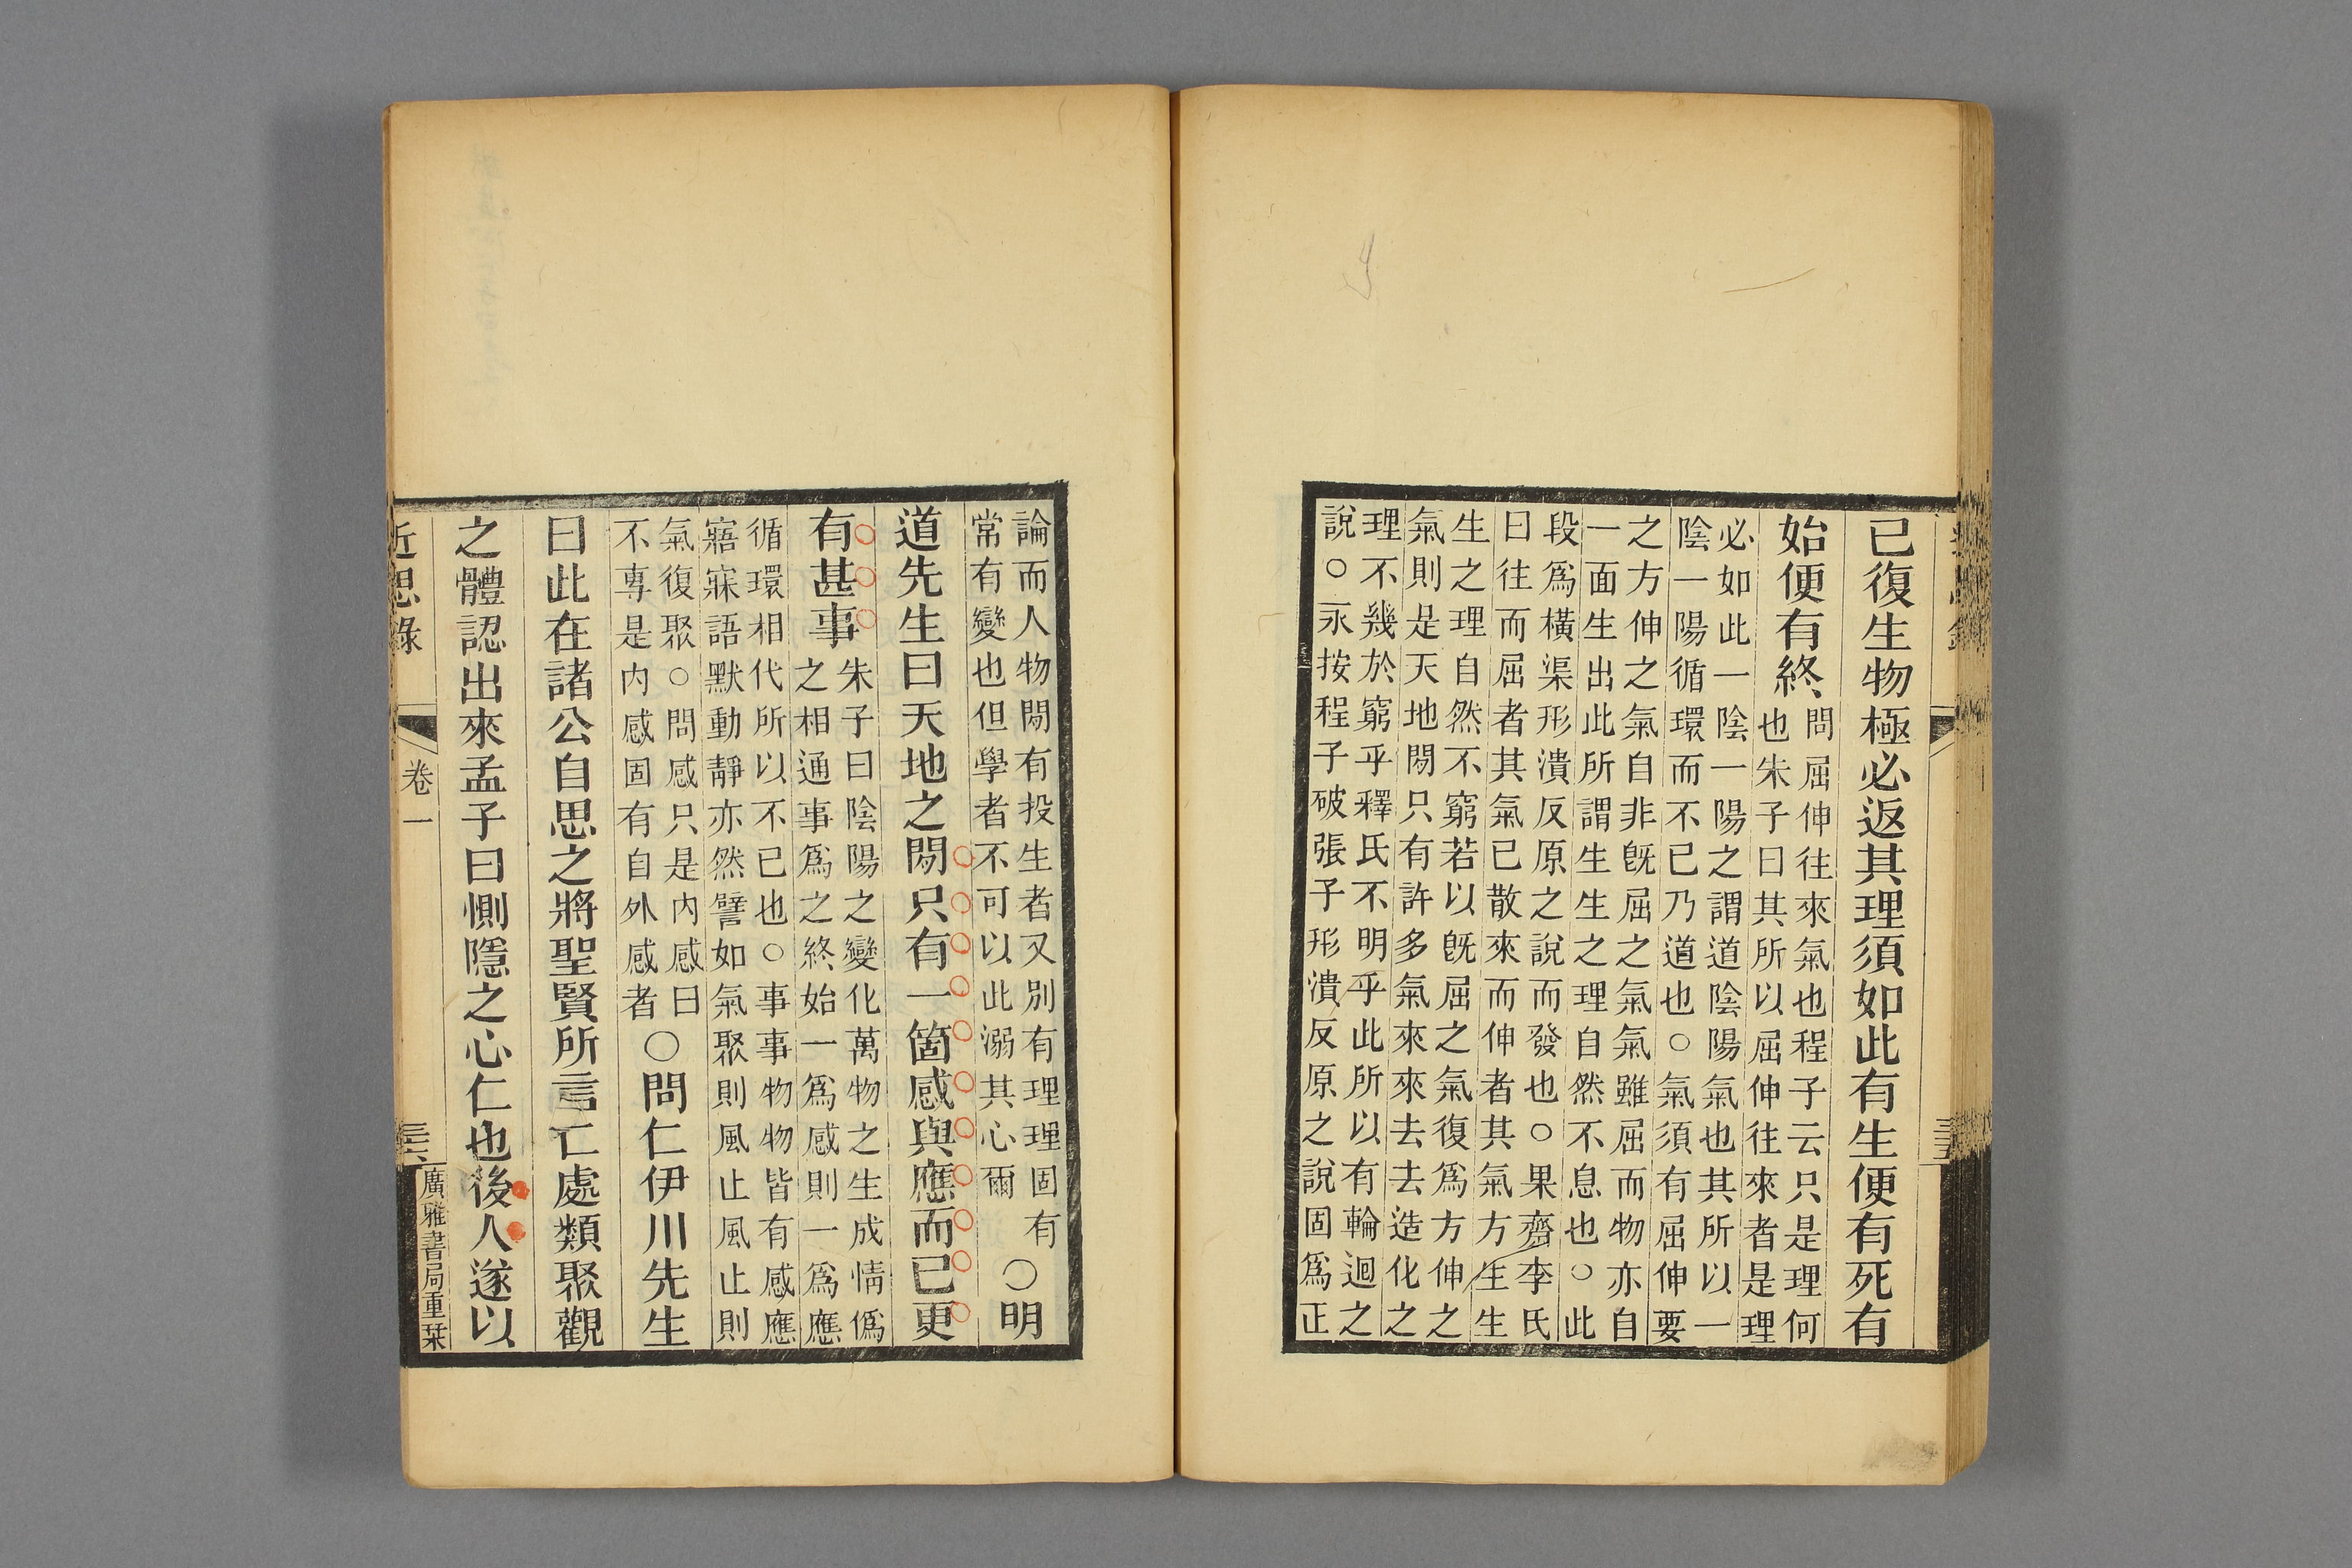 已復生物極必返其理須如此有生便有死有
始便有終
問屈伸往來氣也程子云只是理何
也朱子曰其所以屈伸往來者是理
必如此一陰一陽之謂道陰陽氣也其所以一
陰一陽循環而不已乃道也○氣須有屈伸要
之方伸之氣自非旣屈之氣氣雖屈而物亦自
一面生出此所謂生生之理自然不息也○此
段爲橫渠形潰反原之說而發也○果齋李氏
曰往而屈者其氣已散來而伸者其氣方生生
生之理自然不窮若以旣屈之氣復爲方伸之
氣則是天地閒只有許多氣來來去去造化之
理不幾於窮乎釋氏不明乎此所以有輪迴之
說○永按程子破張子形潰反原之說固爲正
論而人物閒有投生者又別有理理固有
常有變也但學者不可以此溺其心爾
○明
道先生曰天地之閒只有一箇感與應而已更
有甚事
朱子曰陰陽之變化萬物之生成情僞
之相通事爲之終始一爲感則一爲應
循環相代所以不已也○事事物物皆有感應
寤寐語默動靜亦然譬如氣聚則風止風止則
氣復聚○問感只是內感曰
不專是內感固有自外感者
○問仁伊川先生
曰此在諸公自思之將聖賢所言仁處類聚觀
之體認出來孟子曰惻隱之心仁也後人遂以
近思錄
卷一
三六
廣雅書局重栞